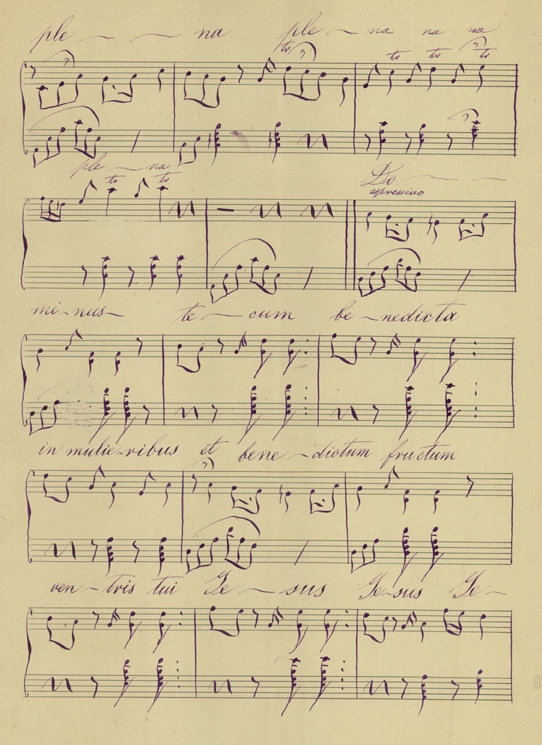 ple — — na ple — na na na
tr tr tr tr
ple — na
tr tr
Do — — —
espressivo
mi-nus — te — cum be — nedicta
in mulie-ribus et bene — dictum fructum
ven — tris tui Je — sus Je-sus Je —